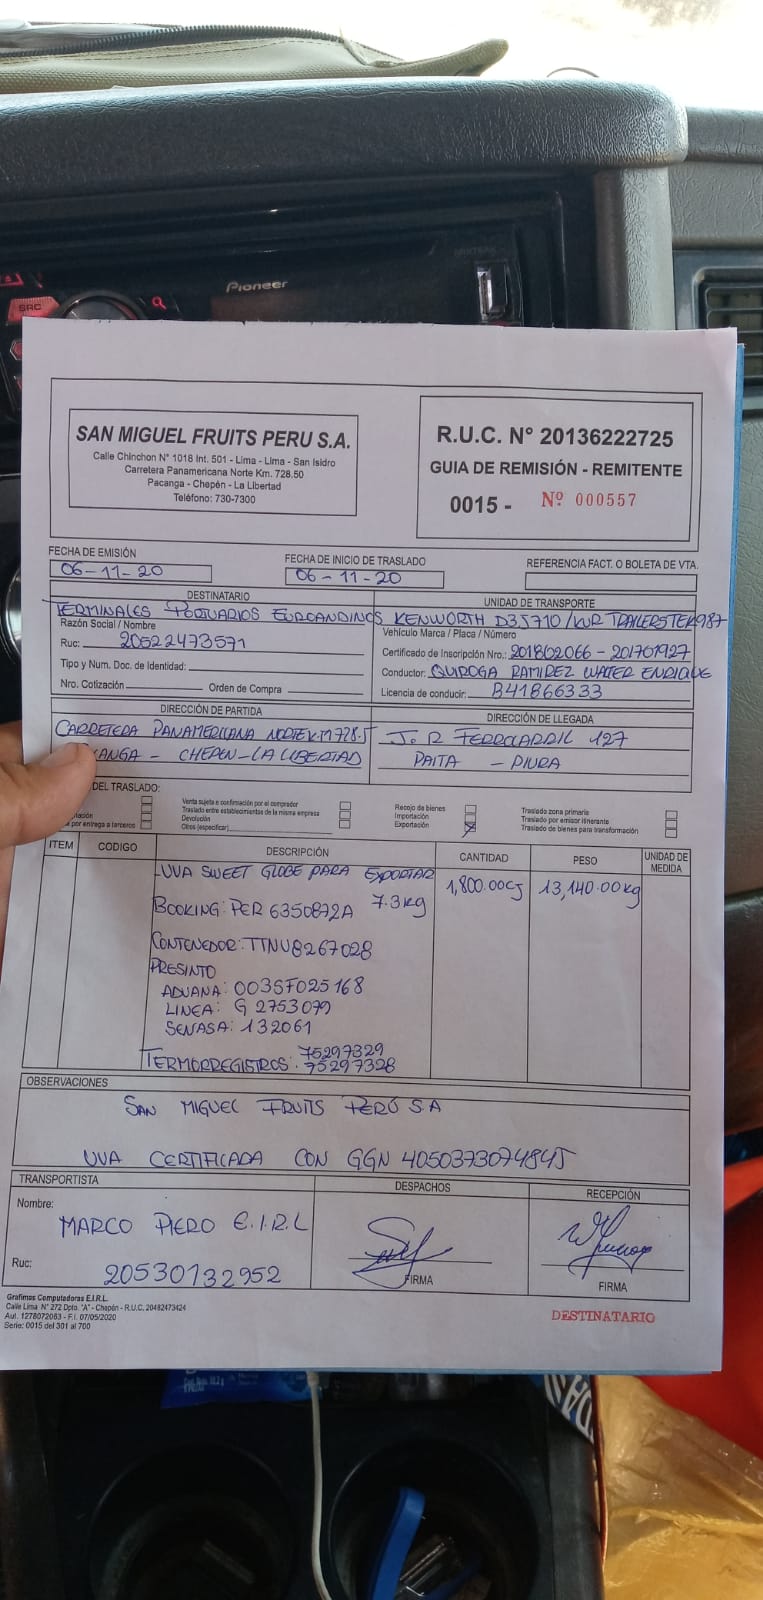 MIXTRAX
Pioneer
SRC
SAN MIGUEL FRUITS PERU S.A.
Calle Chinchon N° 1018 Int. 501 - Lima - Lima - San Isidro
Carretera Panamericana Norte Km. 728.50
Pacanga - Chepén - La Libertad
Teléfono: 730-7300
R.U.C. N° 20136222725
GUIA DE REMISIÓN - REMITENTE
0015 - Nº 000557
FECHA DE EMISIÓN
06-11-20
FECHA DE INICIO DE TRASLADO
06-11-20
REFERENCIA FACT. O BOLETA DE VTA.
DESTINATARIO
TERMINALES PORTUARIOS EUROANDINOS
Razón Social / Nombre
Ruc: 20522473571
Tipo y Num. Doc. de Identidad:
Nro. Cotización Orden de Compra
UNIDAD DE TRANSPORTE
KENWORTH D3J710 / KUR TRAILERS TEK987
Vehículo Marca / Placa / Número
Certificado de Inscripción Nro.: 201802066 - 201701927
Conductor: QUIROGA RAMIREZ WALTER ENRIQUE
Licencia de conducir: B41866333
DIRECCIÓN DE PARTIDA
CARRETERA PANAMERICANA NORTE K.M 728.5
ANGA - CHEPEN - LA LIBERTAD
DIRECCIÓN DE LLEGADA
J.R FERROCARRIL 127
PAITA - PIURA
DEL TRASLADO:
por entrega a terceros
Venta sujeta e confirmación por el comprador
Traslado entre establecimientos de la misma empresa
Devolución
Otros (especificar)
Recojo de bienes
Importación
Exportación X
Traslado zona primaria
Traslado por emisor itinerante
Traslado de bienes para transformación
ITEM CODIGO DESCRIPCIÓN CANTIDAD PESO UNIDAD DE MEDIDA
UVA SWEET GLOBE PARA EXPORTAR 1,800.00CJ 13,140.00kg
7.3kg
BOOKING: PER 6350872A
CONTENEDOR: TTNU8267028
PRESINTO
ADUANA: 003SF025168
LINEA: G 2753079
SENASA: 132061
TERMORREGISTROS: 75297329
75297328
OBSERVACIONES
SAN MIGUEL FRUITS PERÚ S.A
UVA CERTIFICADA CON GGN 4050373074845
TRANSPORTISTA
Nombre:
MARCO PIERO E.I.R.L
Ruc: 20530132952
DESPACHOS
FIRMA
RECEPCIÓN
FIRMA
Grafimos Computadoras E.I.R.L.
Calle Lima N° 272 Dpto. "A" - Chepén - R.U.C. 20482473424
Aut. 1278072063 - F.I. 07/05/2020
Serie: 0015 del 301 al 700
DESTINATARIO